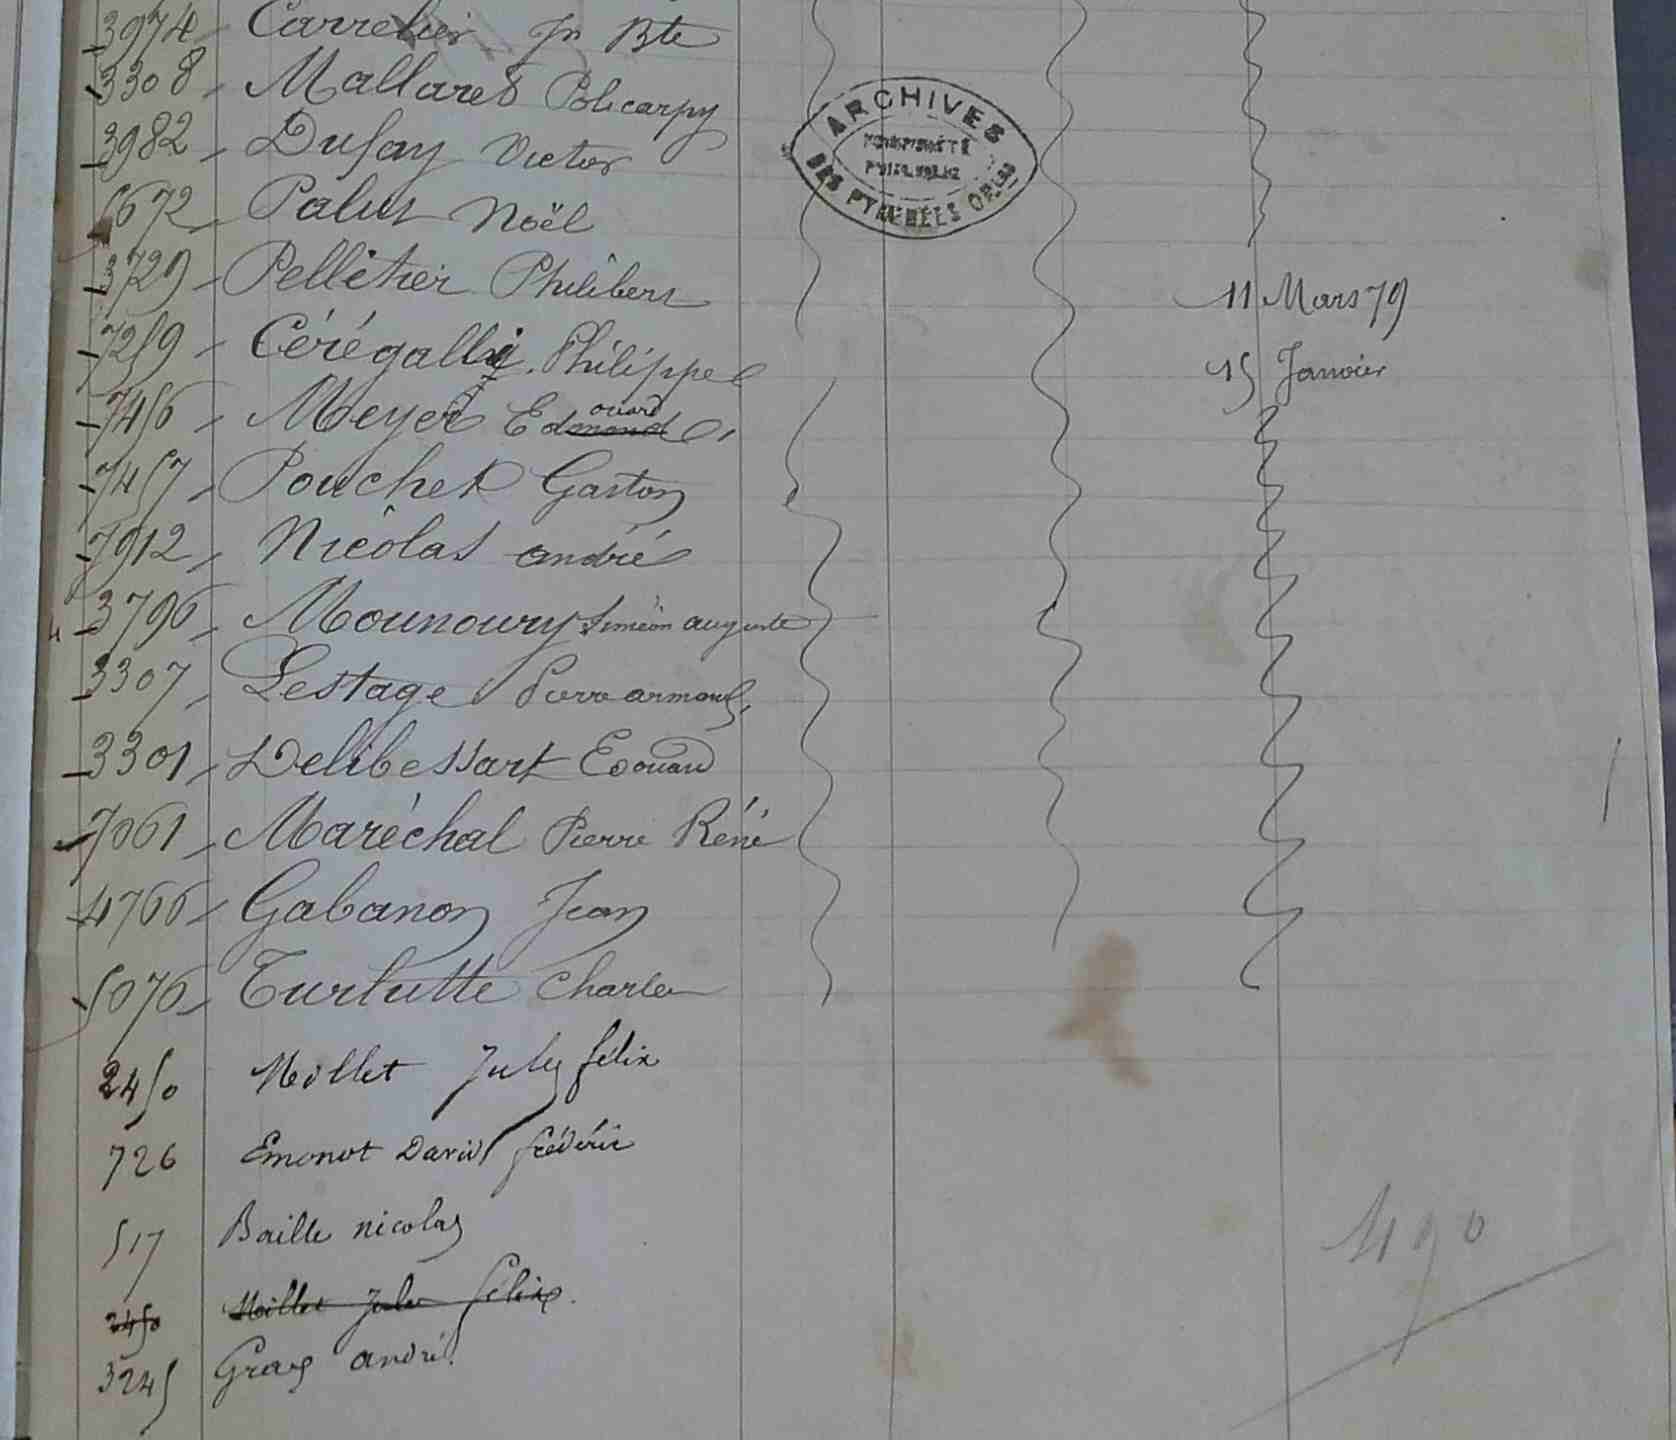 3974 Carrelier Jn Bte
3308 Mallares Policarpy
ARCHIVES
DES PYRÉNÉES ORLES
3982 Dufay Victor
5672 Palus Noël
3729 Pelletier Philibert 11 Mars 79
7259 Cérégally Philippe 15 Janvier
7456 Meyer Edmond ouard
7457 Pouchet Gaston
7912 Nicolas andré
3796 Mounoury Siméon auguste
3307 Lestage Pierre armand
3301 Delibessart Edouard
7061 Maréchal Pierre Réné
4766 Gabanon Jean
5076 Turlutte Charles
2450 Meillet Jules félix
726 Emonot David frédéric
517 Baille nicolas
2450 Meillet Jules félix
3245 Gras andré
490